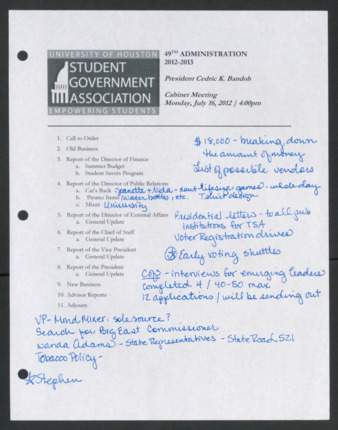 UNIVERSITY OF HOUSTON
STUDENT
GOVERNMENT
ASSOCIATION
EMPOWERING STUDENTS
49TH ADMINISTRATION
2012-2013
President Cedric K. Bandoh
Cabinet Meeting
Monday, July 16, 2012 / 4:00pm
1. Call to Order
2. Old Business
3. Report of the Director of Finance
a. Summer Budget
b. Student Savers Program
$18,000 - breaking down
the amount of money
List of possible vendors
4. Report of the Director of Public Relations
a. Cat's Back Jeanette + Nida - sent lifesize games - whole day
b. Promo Items water bottles, etc. T-shirt design
c. Mixer University
5. Report of the Director of External Affairs
a. General Update
Presidential letters - to all pub
institutions for TSA
Voter Registration drives
6. Report of the Chief of Staff
a. General Update
Early voting shuttles
7. Report of the Vice President
a. General Update
8. Report of the President
a. General Update
COS - interviews for emerging leaders
completed 4 / 40-50 max
12 applications / will be sending out
9. New Business
10. Advisor Reports
11. Adjourn
VP - Mond Mixer: sole source?
Search for Big East Commissioner
Wanda Adams - State Representatives - State Road 521
Tobacco Policy -
Stephen